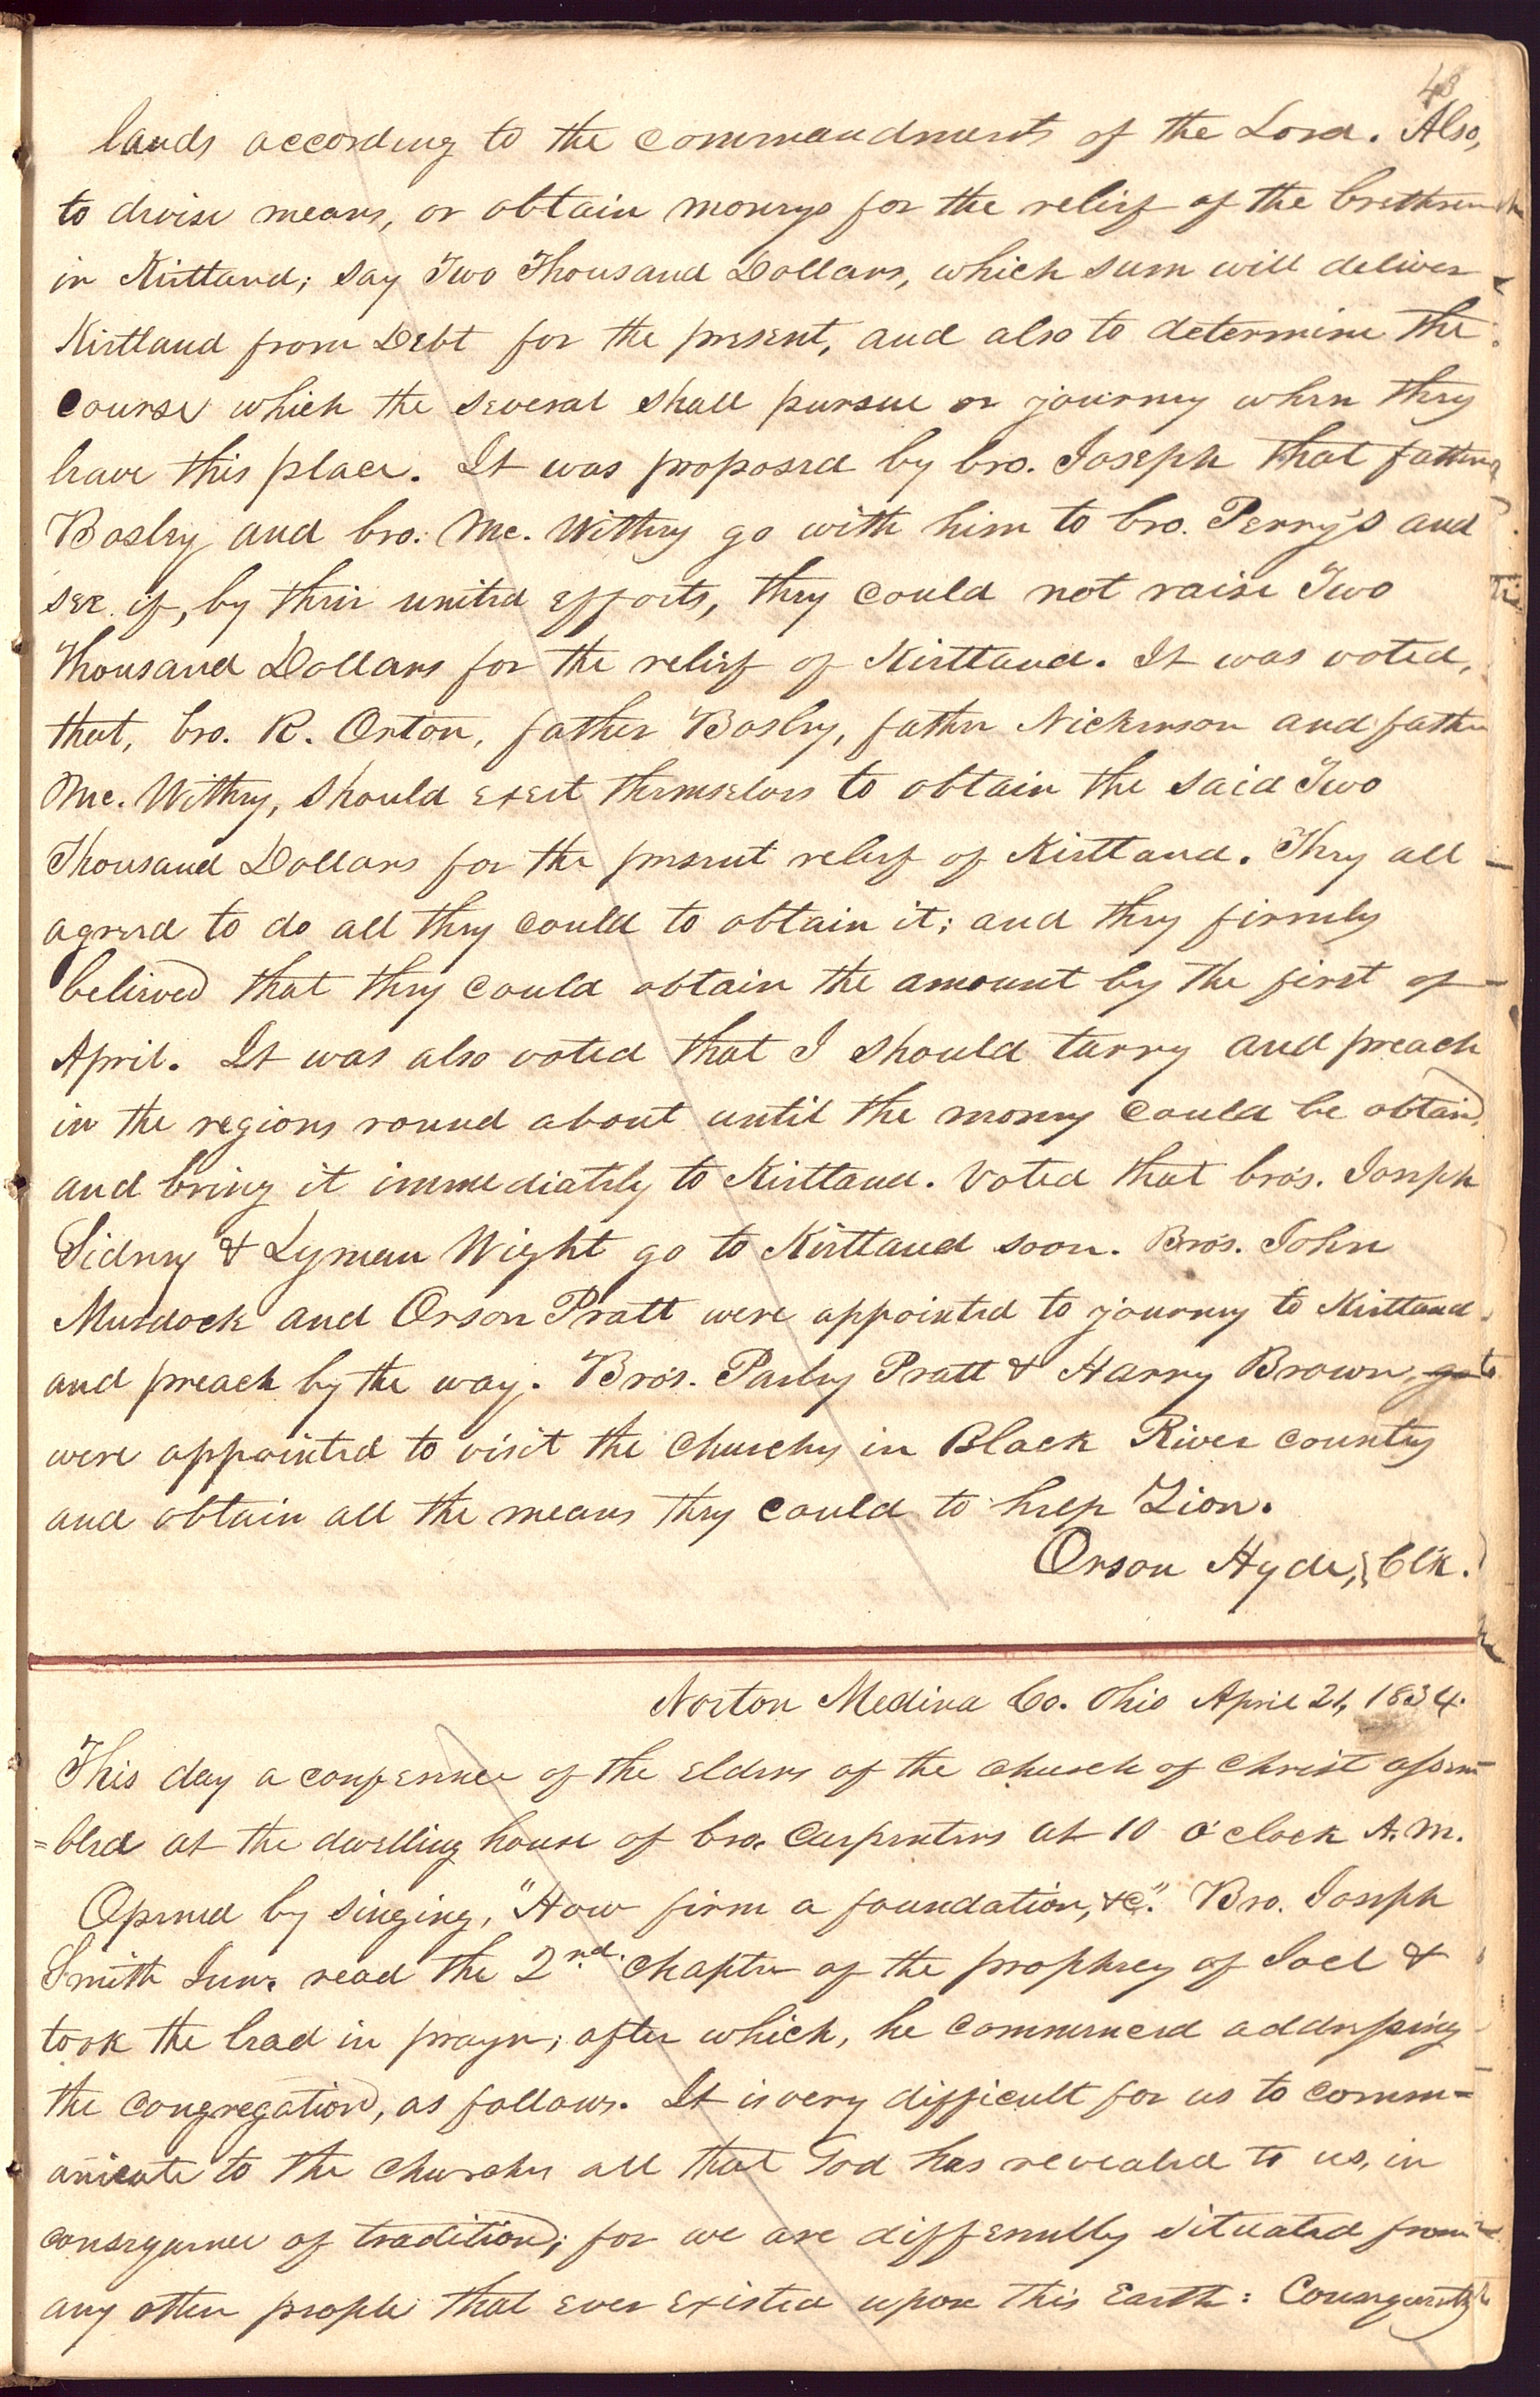 43
lands according to the commandments of the Lord. Also,
to devise means, or obtain moneys for the relief of the brethren
in Kirtland; say Two Thousand Dollars, which sum will deliver
Kirtland from Debt for the present, and also to determine the
course which the several shall pursue or journey when they
leave this place. It was proposed by bro. Joseph that father
Bosley and bro. Mc. Withey go with him to bro. Perry's and
see if, by their united efforts, they could not raise Two
Thousand Dollars for the relief of Kirtland. It was voted,
that, bro. R. Orton, father Bosley, father Nickerson and father
Mc. Withey, should exert themselves to obtain the said Two
Thousand Dollars for the present relief of Kirtland. They all
agreed to do all they could to obtain it; and they firmly
believed that they could obtain the amount by the first of
April. It was also voted that I should tarry and preach
in the regions round about until the money could be obtain,
and bring it immediately to Kirtland. Voted that bro's. Joseph
Sidney & Lyman Wight go to Kirtland soon. Bro's. John
Murdock and Orson Pratt were appointed to journey to Kirtland
and preach by the way. Bro's. Parley Pratt & Harry Brown, go to
were appointed to visit the churches in Black River country
and obtain all the means they could to help Zion.
Orson Hyde, Clk.
Norton Medina Co. Ohio April 21, 1834.
This day a conference of the Elders of the church of Christ assem-
=bled at the dwelling house of bro. Carpenters at 10 o'clock A.M.
Opened by singing, "How firm a foundation, &c". Bro. Joseph
Smith Junr. read the 2nd. chapter of the prophecy of Joel &
took the lead in prayer; after which, he commenced addressing
the congregation, as follows. It is very difficult for us to comm=
unicate to the churches all that God has revealed to us, in
consequence of tradition; for we are differently situated from
any other people that ever existed upon this Earth: Consequently